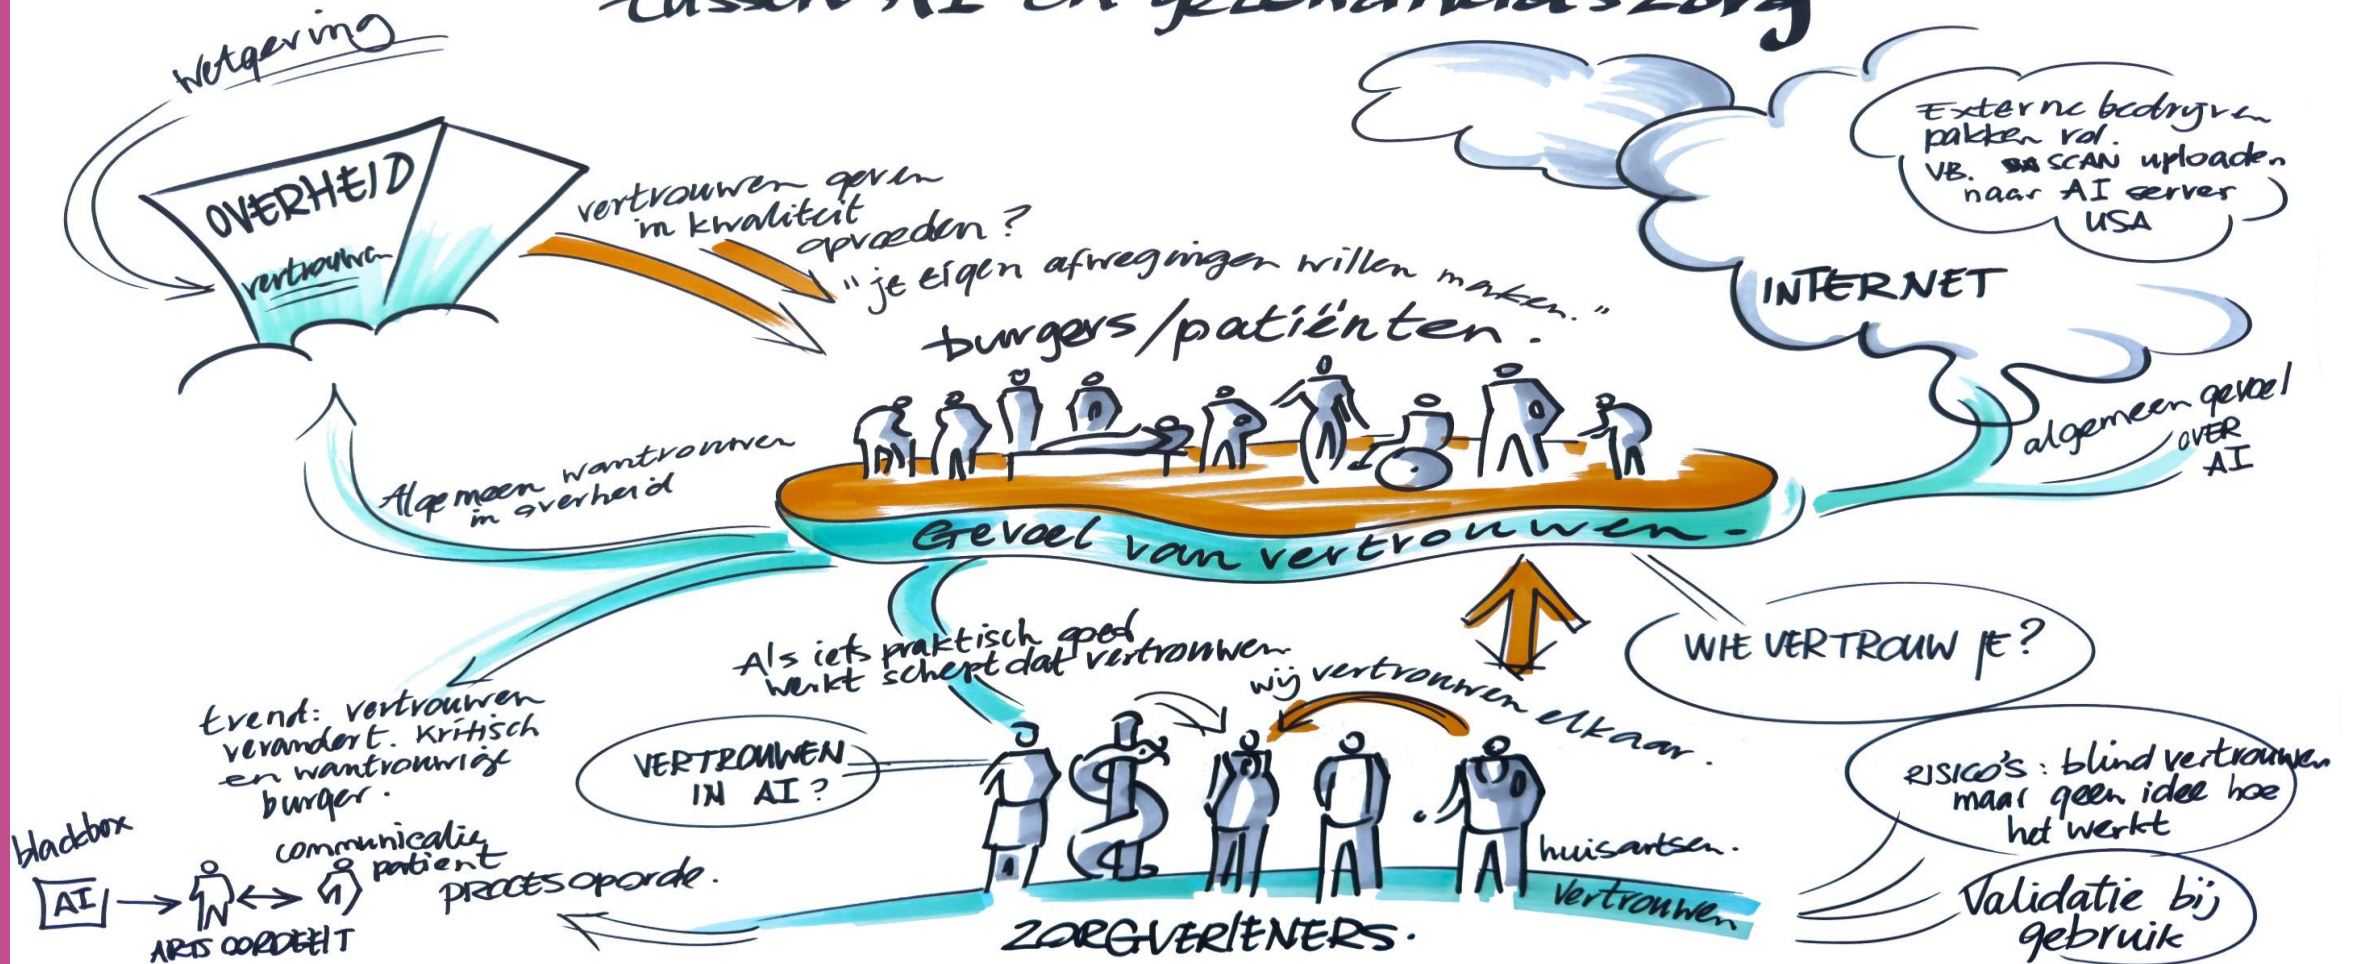 tussen AI en gezondheidszorg
wetgeving
OVERHEID
vertrouwen
vertrouwen geven
in kwaliteit
opvoeden?
"je eigen afwegingen willen maken."
burgers/patiënten.
Externe bedrijven
pakken rol.
VB. SCAN uploaden
naar AI server
USA
INTERNET
algemeen gevoel
OVER
AI
Algemeen wantrouwen
in overheid
Gevoel van vertrouwen-
WIE VERTROUW JE?
Als iets praktisch goed
werkt schept dat vertrouwen
wij vertrouwen elkaar.
trend: vertrouwen
verandert. Kritisch
en wantrouwige
burger.
VERTROUWEN
IN AI?
RISICO'S: blind vertrouwen
maar geen idee hoe
het werkt
blackbox
AI
communicatie
patient
ARTS OORDEELT
PROCES OPORDE.
huisartsen.
Vertrouwen
ZORGVERLENERS.
Validatie bij
gebruik